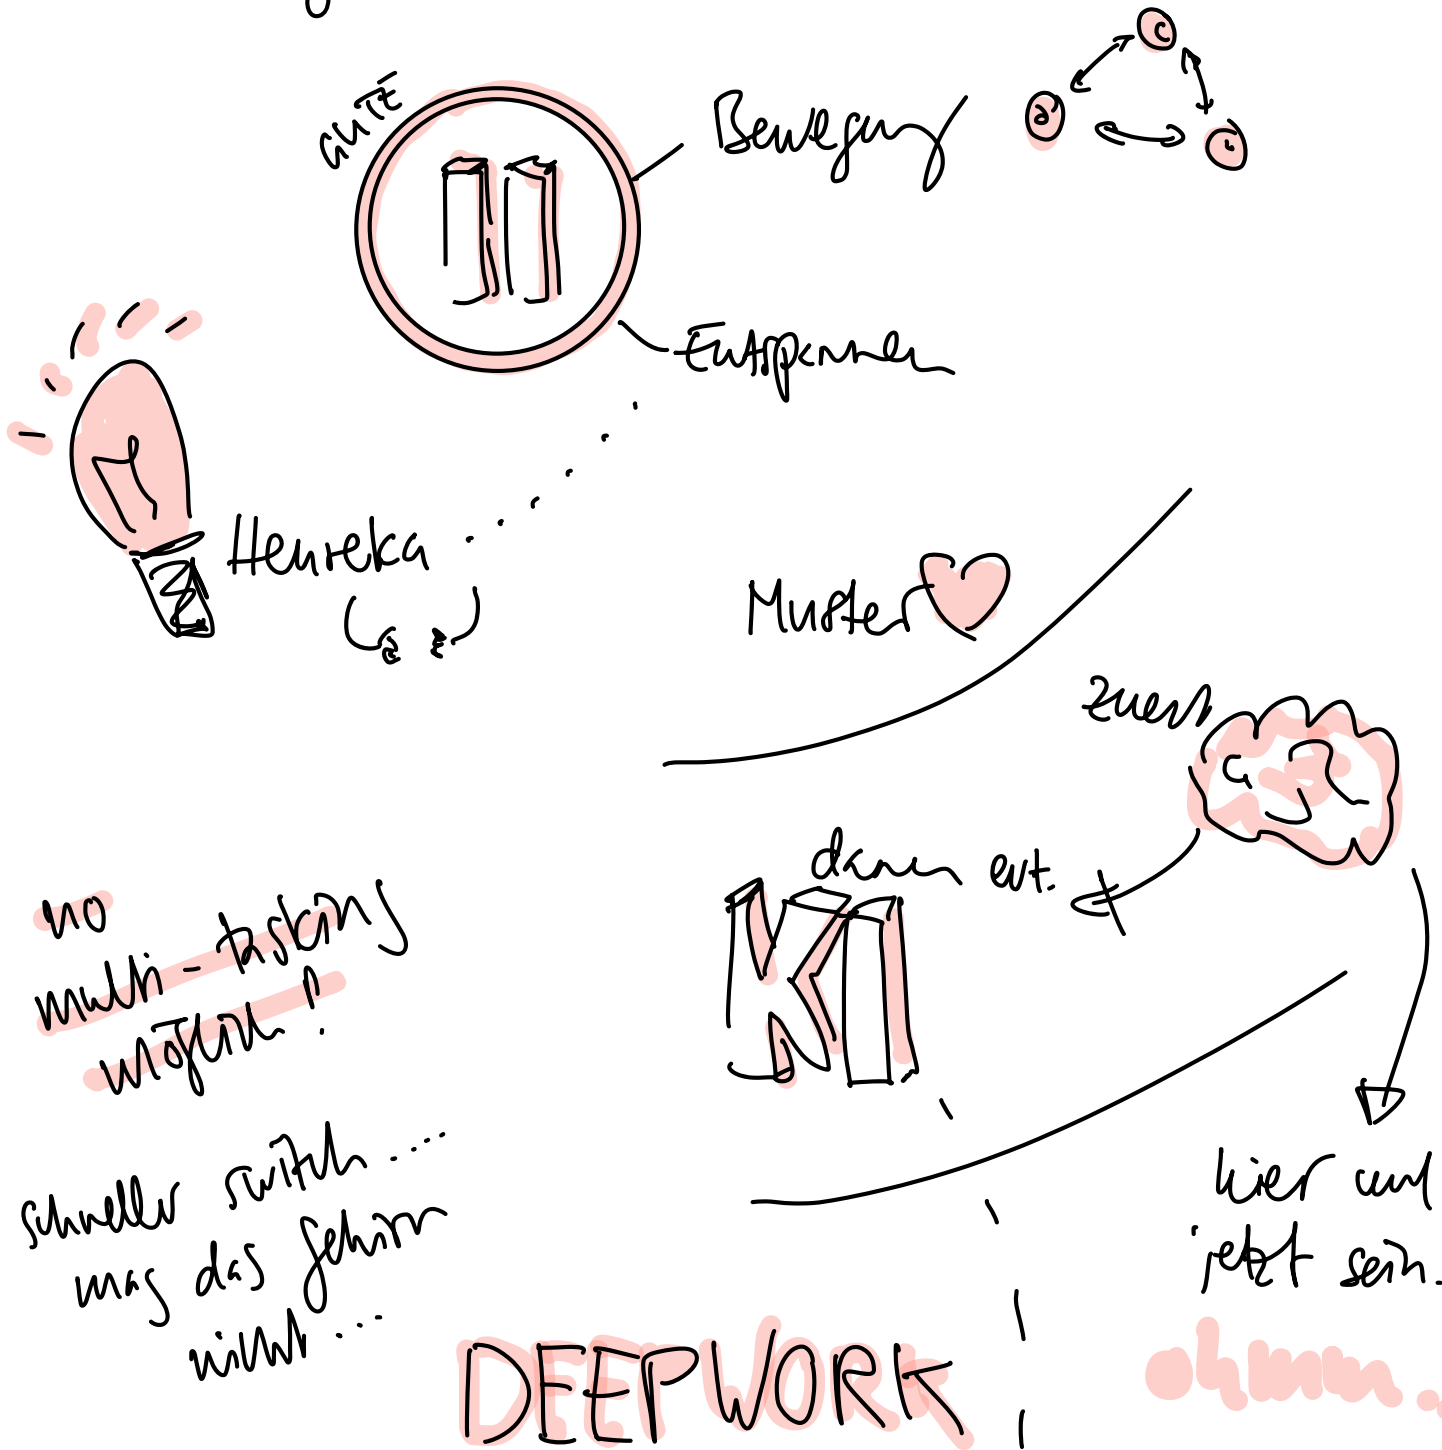 GUTE
Bewegung
c
a
b
Entspannen
Heureka
Muster
zuerst
dann evt.
KI
no
multi-tasking
möglich!
schneller switch....
mag das gehirn
nicht...
hier und
jetzt sein.
DEEPWORK
ohmm..